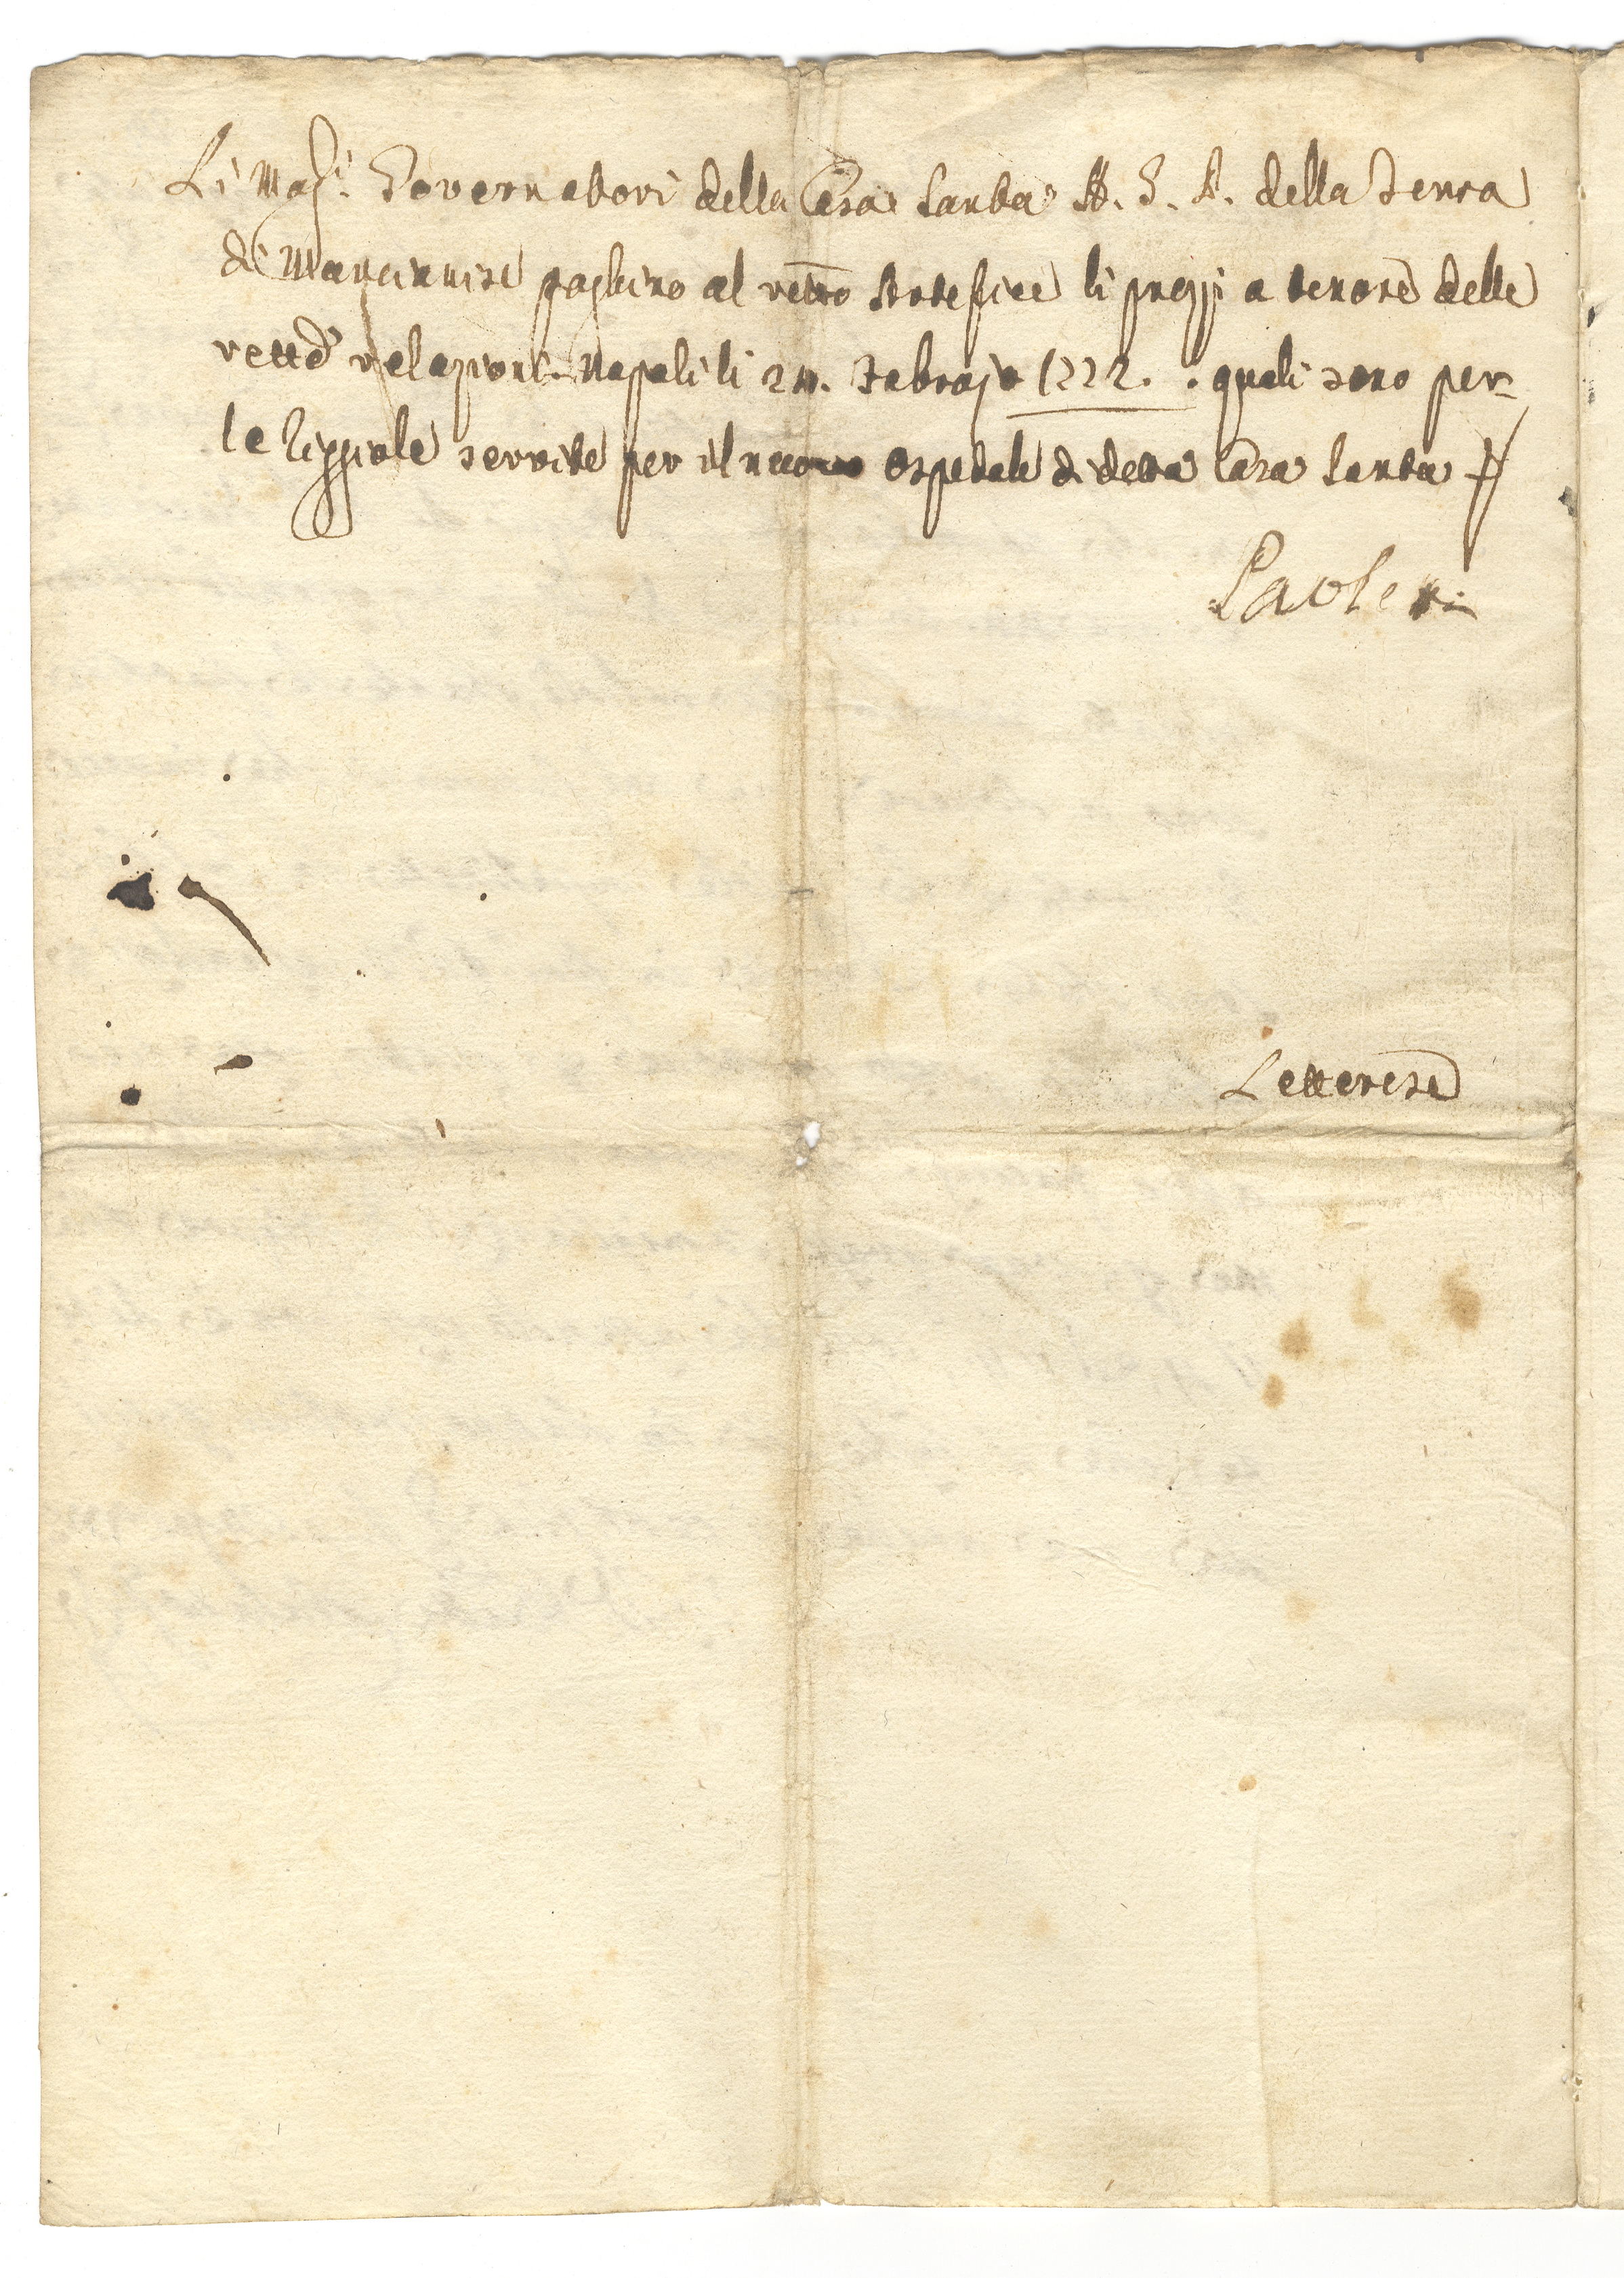 Li Mag.ci Governatori della Casa Santa A. G. P. della Terra
di Marcianise paghino al rettro Artefice li prezzi a tenore delle
rette relazioni. Napoli li 24. Febrajo 1777. quali sono per
le Riggiole servite per il nuovo Ospedale di detta Casa Santa
Letterese